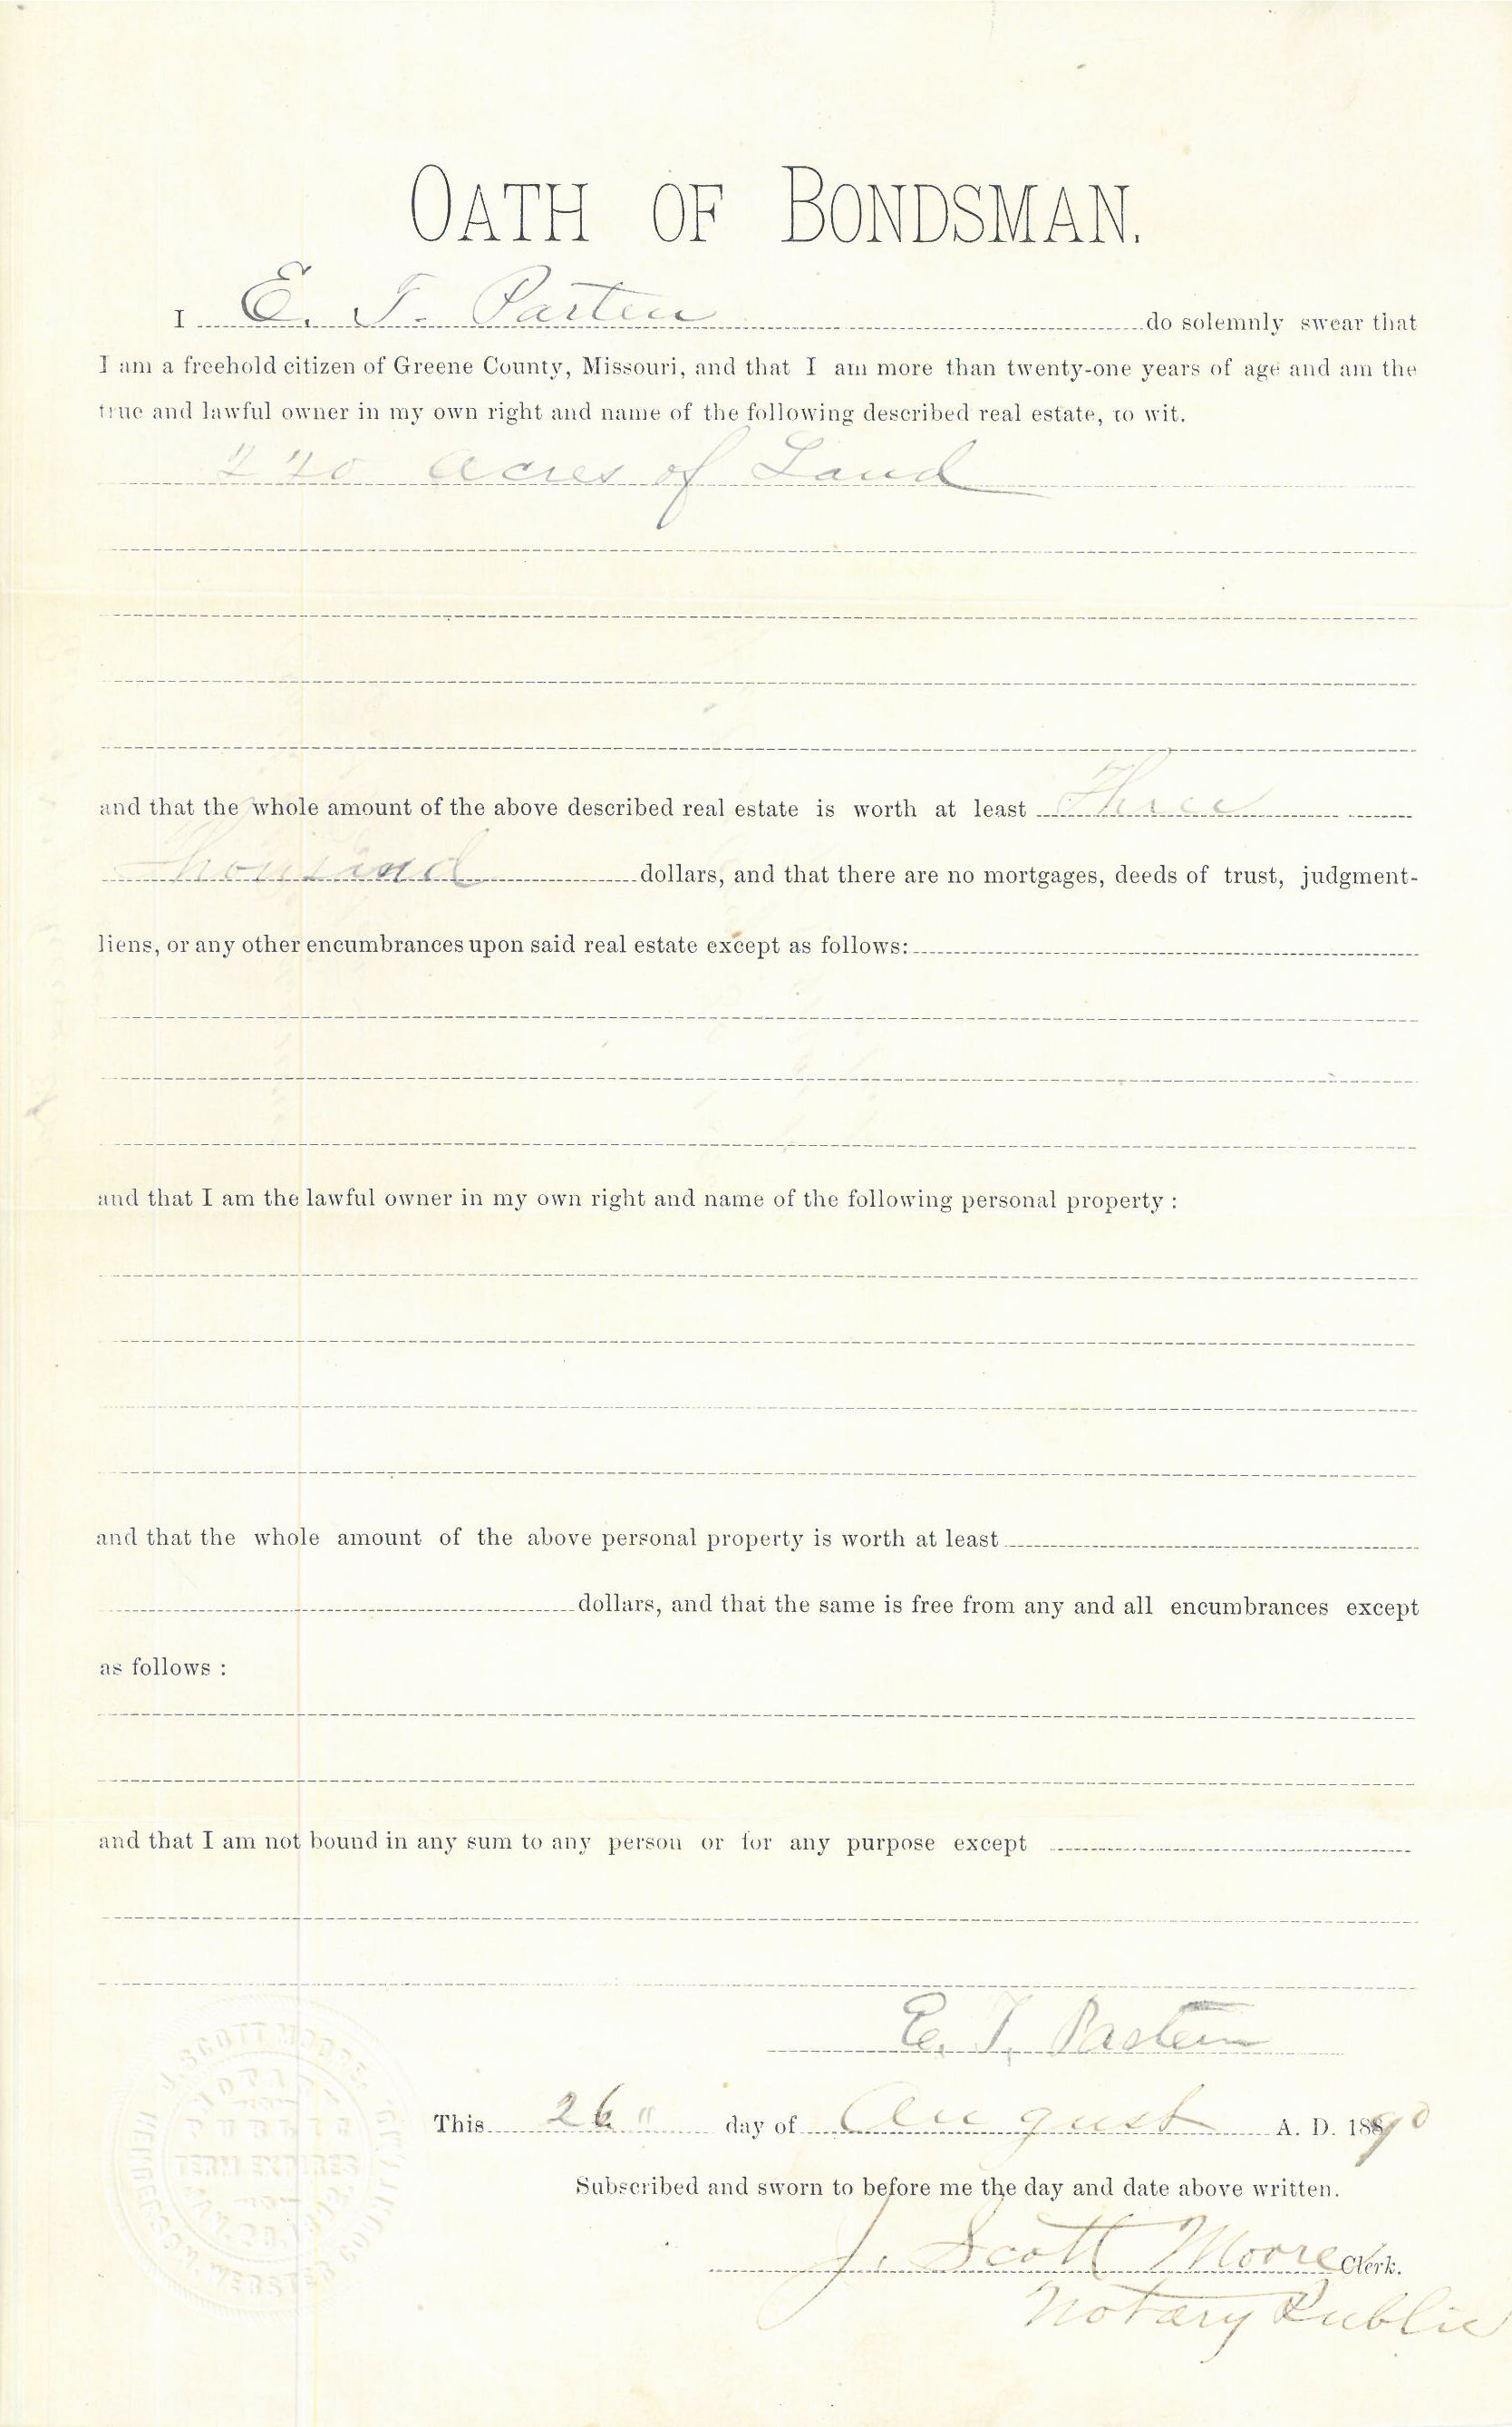 OATH OF BONDSMAN.
I E. T. Parten do solemnly swear that
I am a freehold citizen of Greene County, Missouri, and that I am more than twenty-one years of age and am the
true and lawful owner in my own right and name of the following described real estate, to wit.
acres of Land
and that the whole amount of the above described real estate is worth at least Three
Thousand dollars, and that there are no mortgages, deeds of trust, judgment-
liens, or any other encumbrances upon said real estate except as follows:
and that I am the lawful owner in my own right and name of the following personal property :
and that the whole amount of the above personal property is worth at least
dollars, and that the same is free from any and all encumbrances except
as follows :
and that I am not bound in any sum to any person or for any purpose except
E. T. Parten
This 26" day of August A. D. 1890
Subscribed and sworn to before me the day and date above written.
J. Scott Moore Clerk.
Notary Public
J. SCOTT MOORE
NOTARY
PUBLIC
TERM EXPIRES
WEBSTER COUNTY